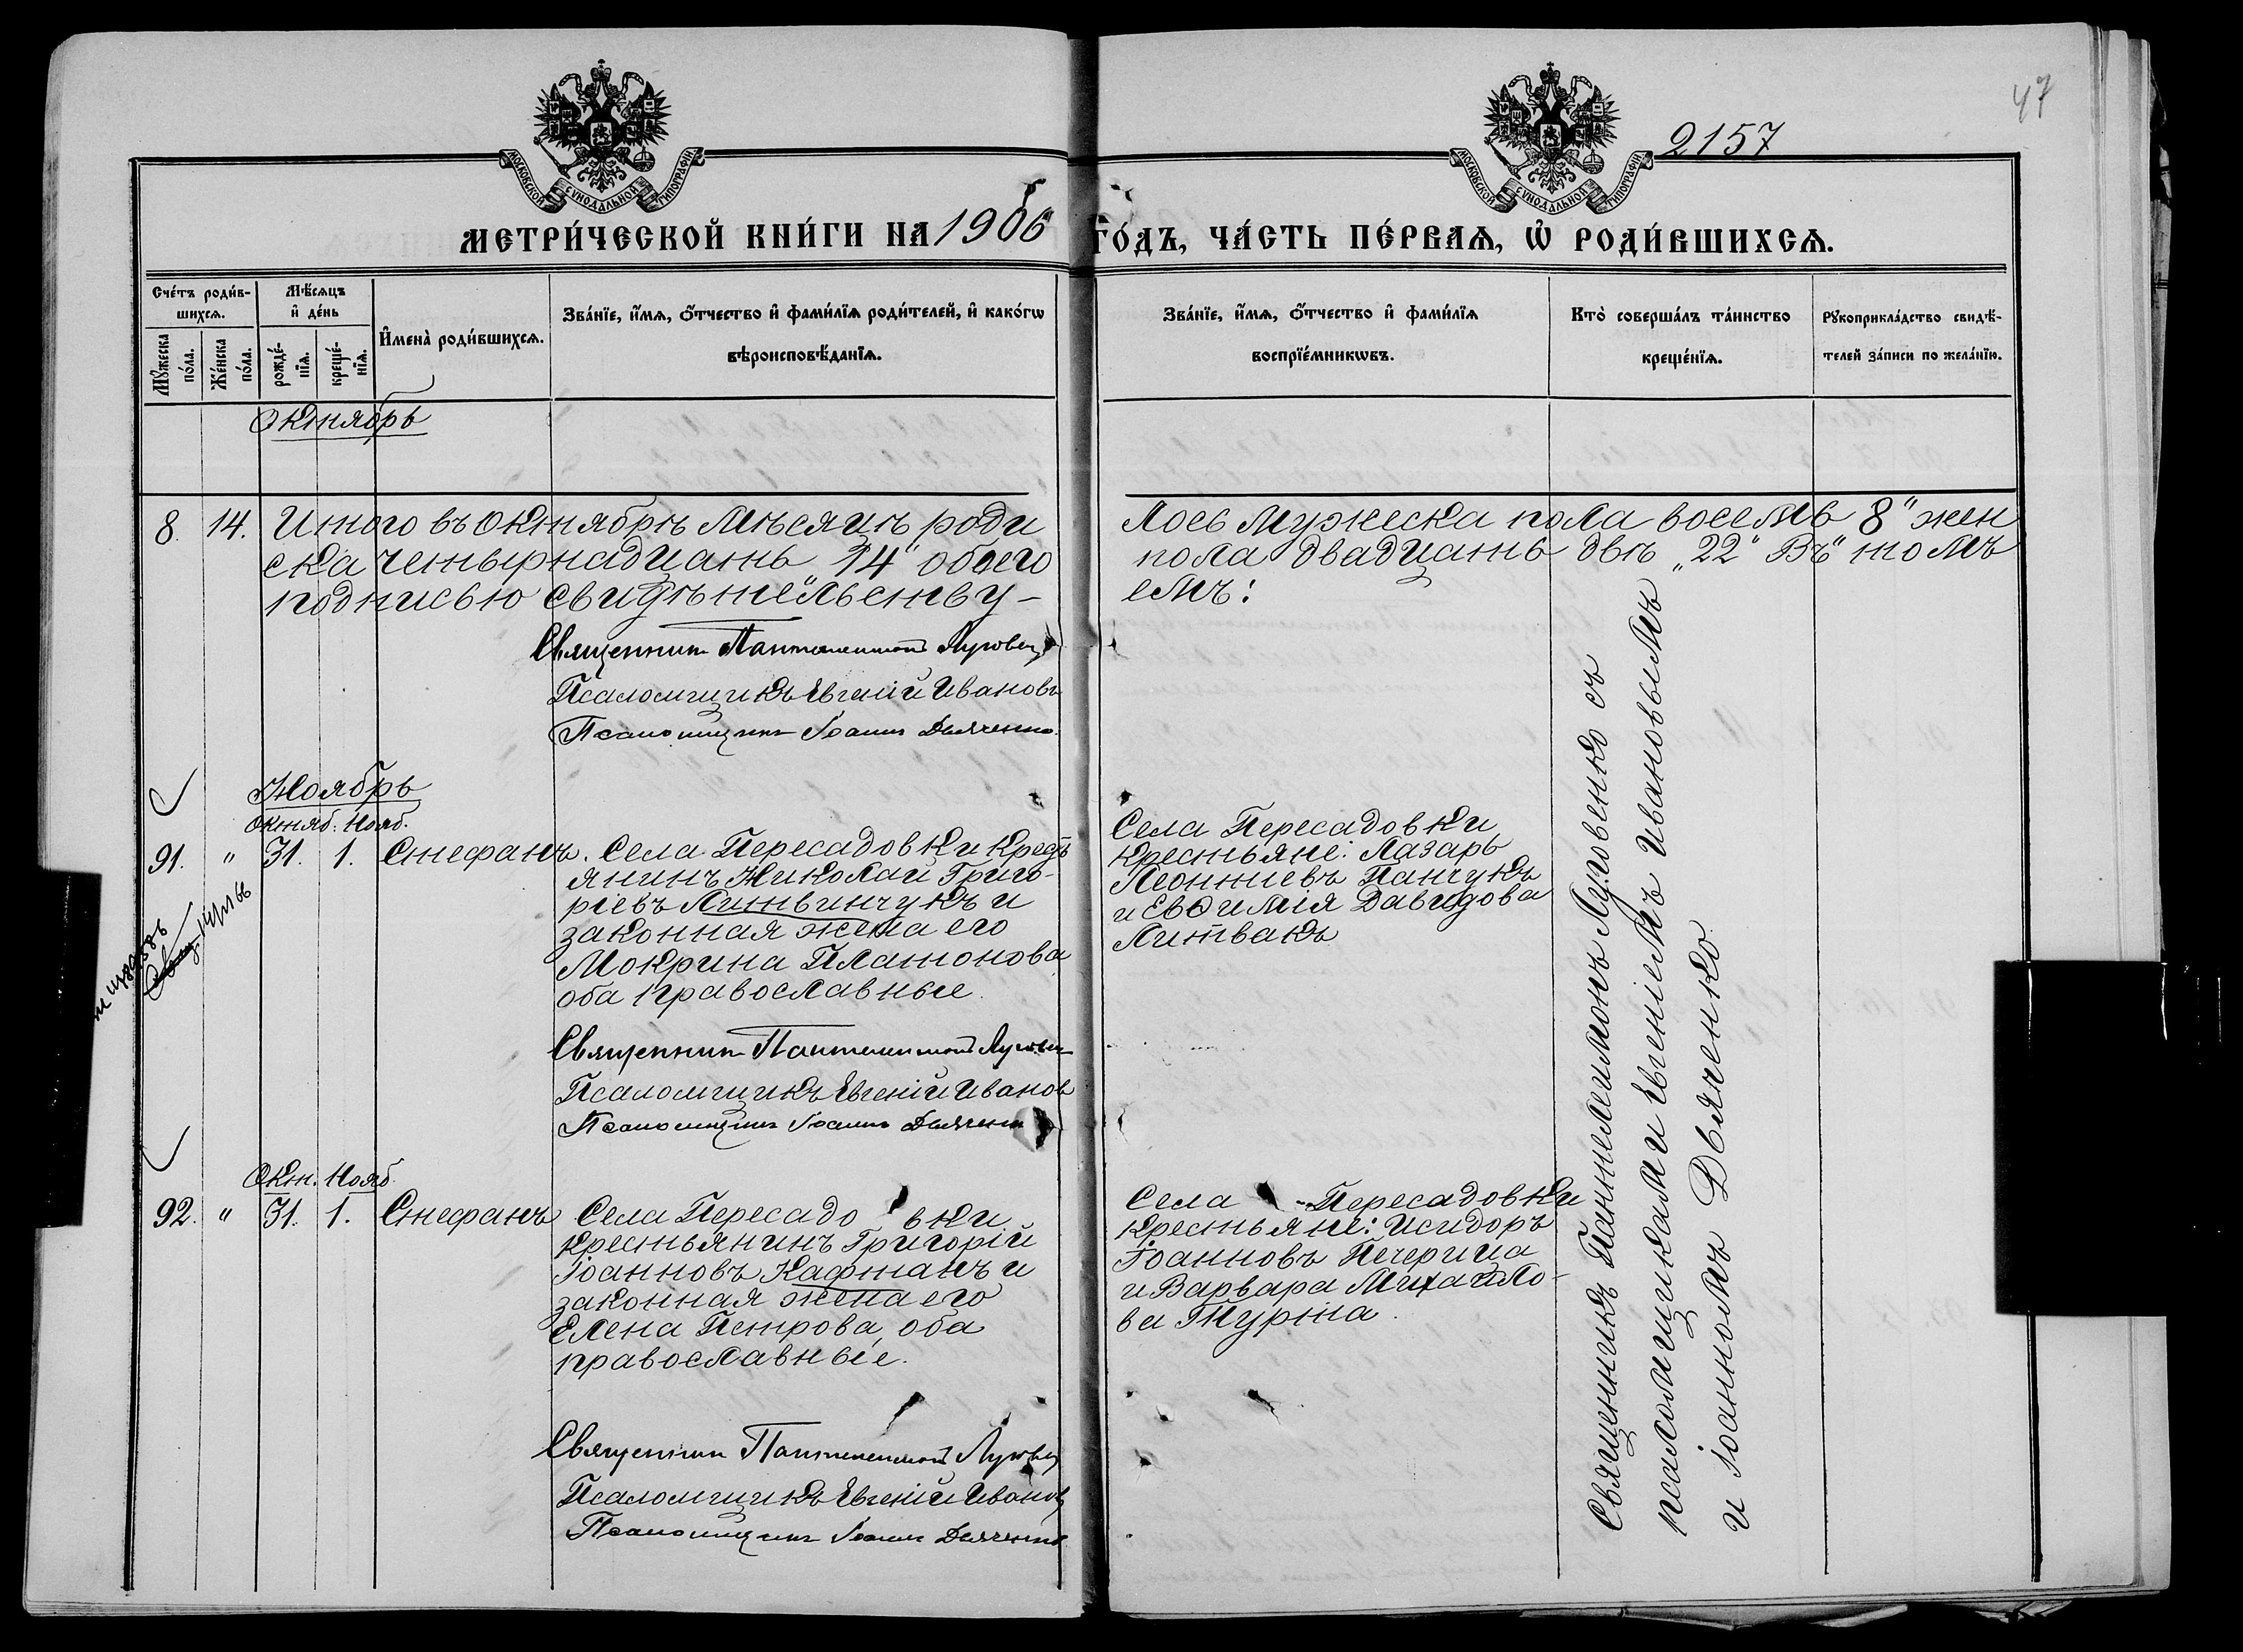 47
2157
МОСКОВСКОЙ СѴНОДАЛЬНОЙ ТИПОГРАФІИ
МОСКОВСКОЙ СѴНОДАЛЬНОЙ ТИПОГРАФІИ
МЕТРИ́ЧЕСКОЙ КНИ́ГИ НА 1906 ГО́ДЪ, ЧА́СТЬ ПЕ́РВАѦ, Ѡ҆ РОДИ́ВШИХСѦ.
Сче́тъ роди́в-
шихсѧ.
Мꙋ́жеска по́ла.
Же́нска по́ла.
Мѣ́сѧцъ
и҆ де́нь
рожде́-
нїѧ.
креще́-
нїѧ.
И҆мена̀ роди́вшихсѧ.
Зва́нїе, и҆́мѧ, ѻ҆́тчество и҆ фами́лїѧ роди́телей, и҆ како́гѡ
вѣроисповѣ́данїѧ.
Зва́нїе, и҆́мѧ, ѻ҆́тчество и҆ фами́лїѧ
воспрїе́мникѡвъ.
Кто̀ соверша́лъ та́инство
креще́нїѧ.
Рꙋкоприкла́дство свидѣ́-
телей за́писи по жела́нїю.
Октябрь
8. 14. Итого въ Октябрѣ мѣсяцѣ роди лось мужеска пола восемь 8" жен
ска четырнадцать 14" обоего пола двадцать двѣ „22" Въ томъ
подписью свидѣтельству- емъ:
Священникъ Пантелеимонъ Луговен
Псаломщикъ Евгеній Ивановъ
Псаломщикъ Іоаннъ Дьяченко.
Ноябрь
Октяб. Нояб.
91. " 31. 1. Стефанъ. Села Пересадовки крест
янинъ Николай Григо-
ріевъ Литвинчукъ и
законная жена его
Мокрина Платонова
оба православные.
Села Пересадовки
крестьяне: Лазарь
Леонтіевъ Панчукъ
и Евѳимія Давидова
Литвакъ
Священникъ Пантелеимонъ Луговен
Псаломщикъ Евгеній Иванов
Псаломщикъ Іоаннъ Дьяченк
Окт. Нояб
92. " 31. 1. Стефанъ Села Пересадовки
крестьянинъ Григорій
Іоанновъ Кафтанъ и
законная жена его
Елена Петрова, оба
православные.
Села Пересадовки
крестьяне: Исидоръ
Іоанновъ Печерица
и Варвара Михайло-
ва Турта.
Священникъ Пантелеимонъ Луговен
Псаломщикъ Евгеній Иванов
Псаломщикъ Іоаннъ Дьяченко
Священникъ Пантелеимонъ Луговенко съ
псаломщиками Евгеніемъ Ивановымъ
и Іоанномъ Дьяченко.